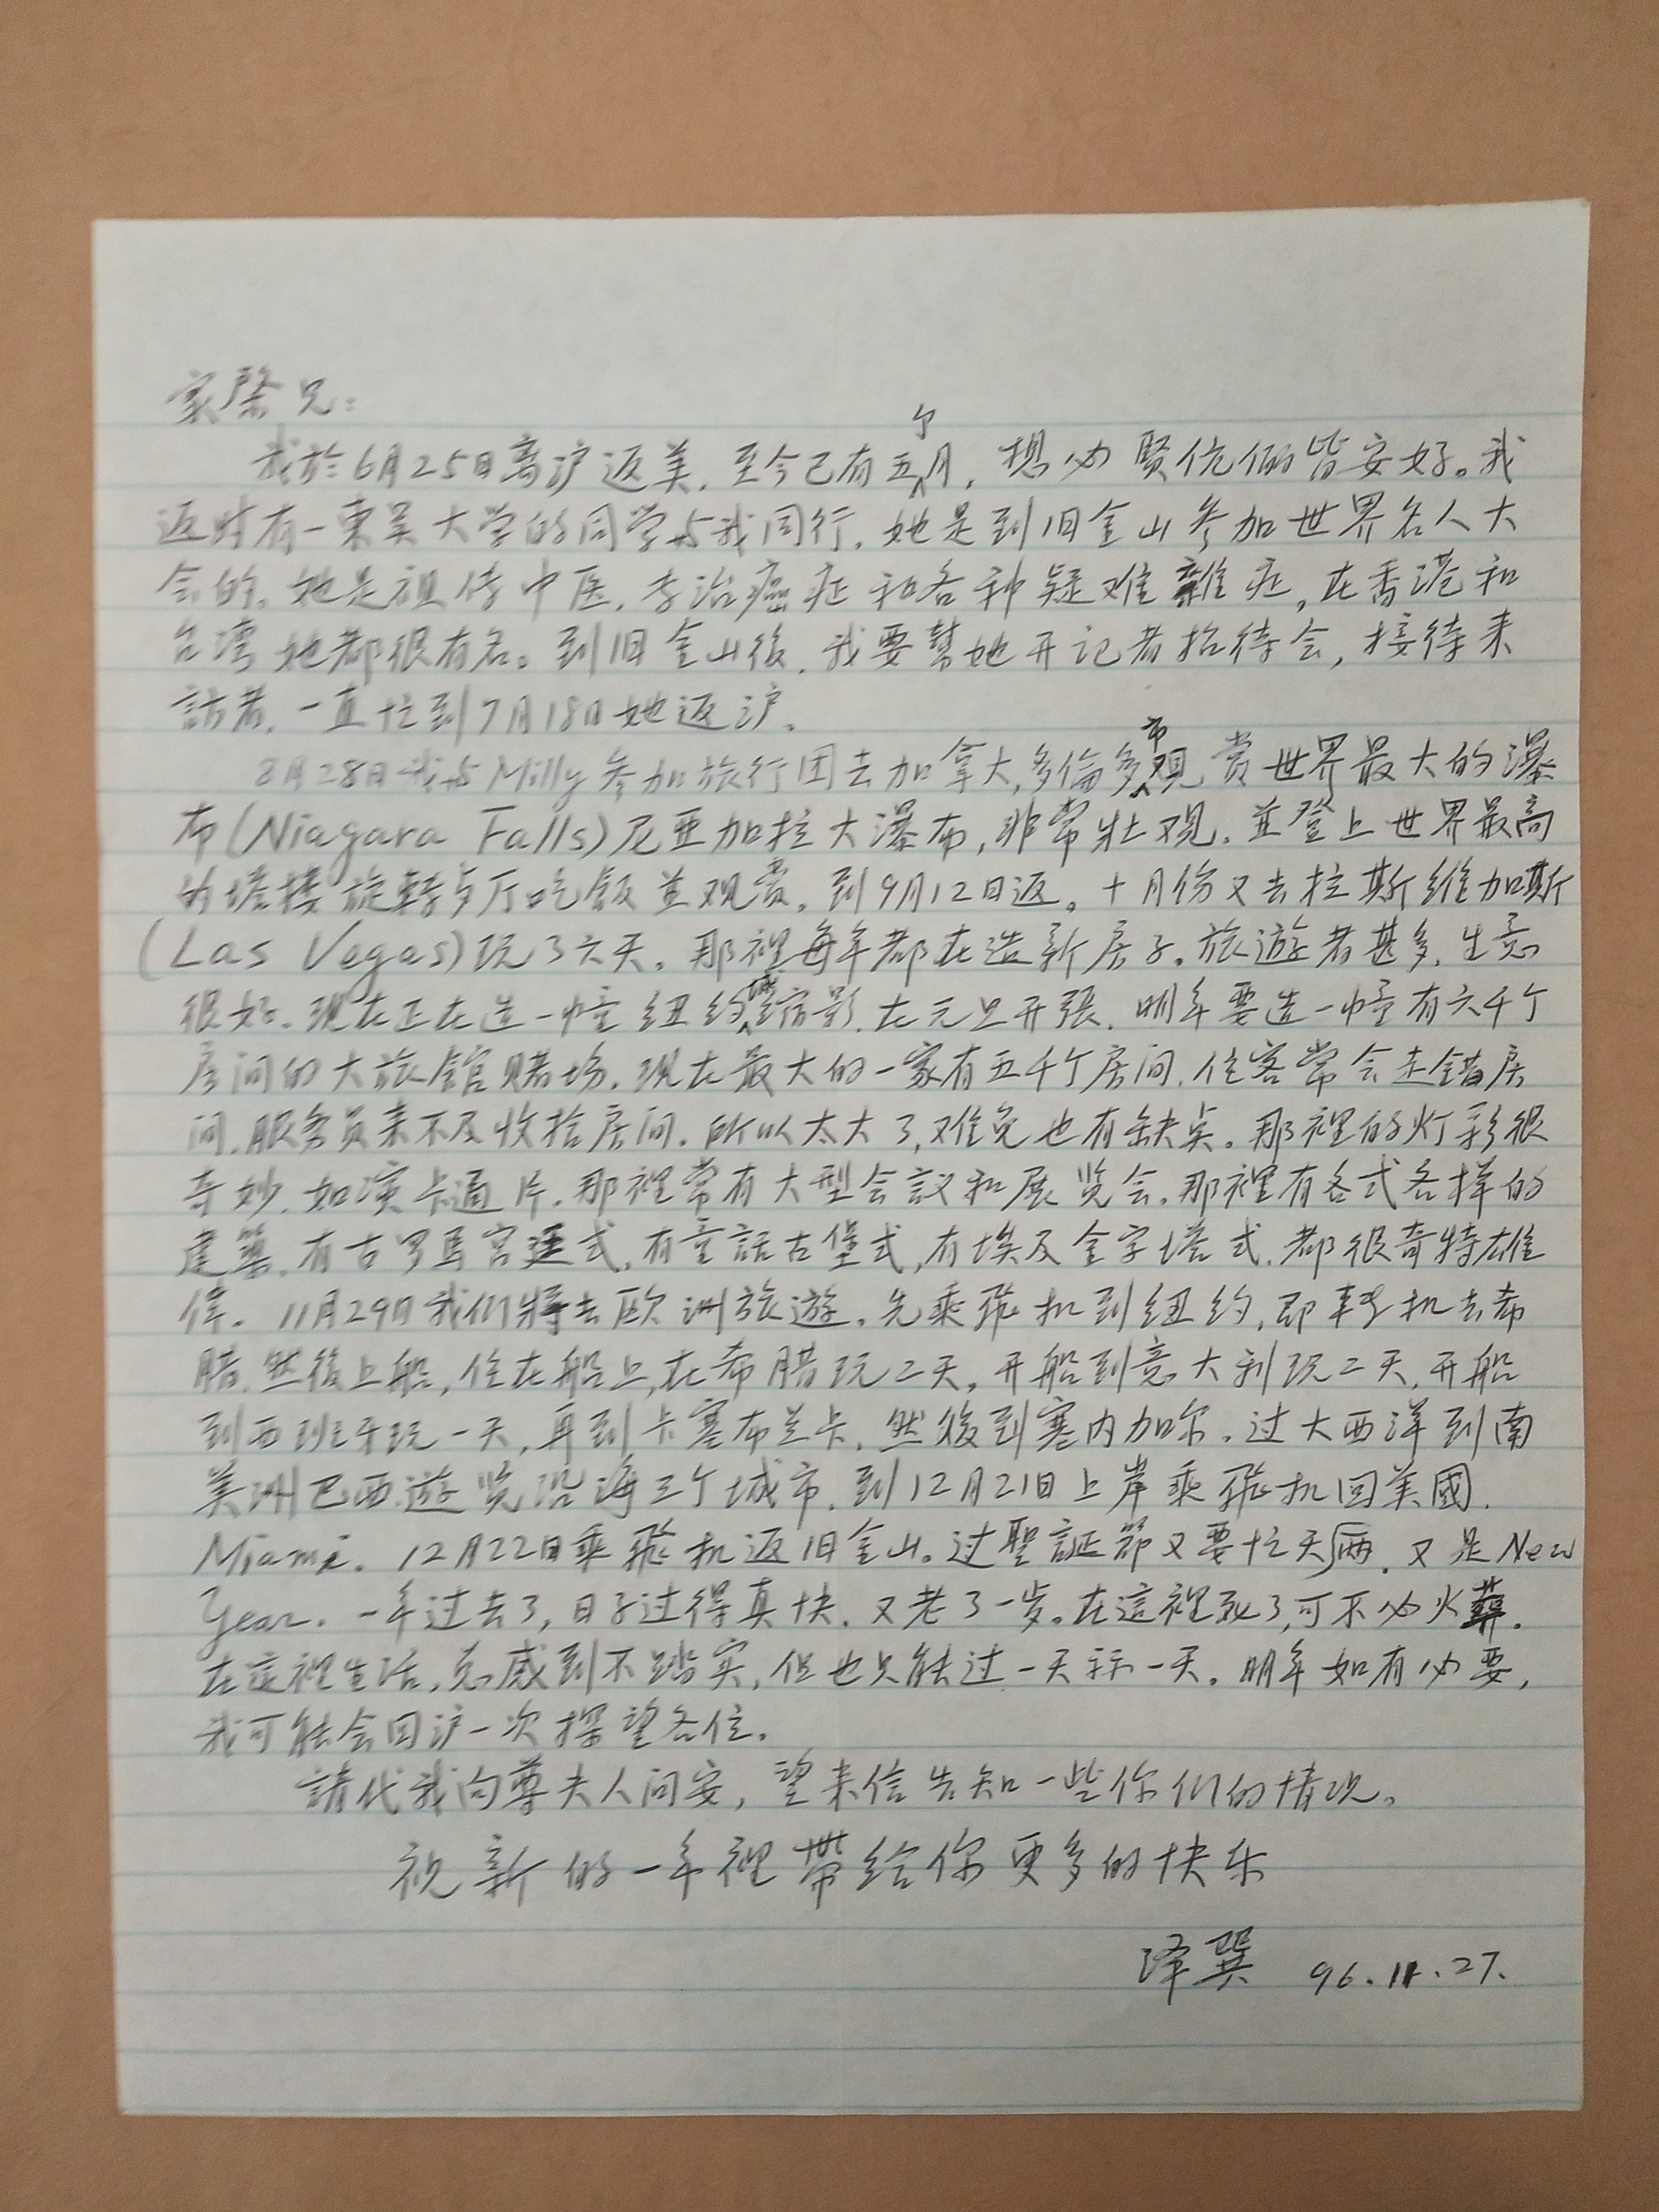 家騄兄：
我於6月25日离沪返美，至今已有五个月，想必贤伉俪皆安好。我
返时有一東吴大学的同学与我同行，她是到旧金山参加世界名人大
会的。她是祖传中医，专治癌症和各种疑难雜症，在香港和
台湾她都很有名。到旧金山後，我要幫她开记者招待会，接待来
訪者，一直忙到7月18日她返沪。
8月28日我与Milly参加旅行团去加拿大，多倫多市观赏世界最大的瀑
布(Niagara Falls)尼亚加拉大瀑布，非常壮观，並登上世界最高
的塔楼旋轉歺厅吃飯並观赏。到9月12日返。十月份又去拉斯維加斯
(Las Vegas)玩了六天。那裡每年都在造新房子。旅遊者甚多，生意
很好。现在正在造一幢纽约城缩影，在元旦开張。明年要造一幢有六千个
房间的大旅館赌场。现在最大的一家有五千个房间，住客常会走錯房
间，服务员来不及收拾房间。所以太大了，难免也有缺点。那裡的灯彩很
奇妙，如演卡通片。那裡常有大型会議和展览会。那裡有各式各样的
建築，有古罗馬宫廷式，有童話古堡式，有埃及金字塔式，都很奇特雄
偉。11月29日我们将去欧洲旅遊。先乘飛机到纽约，即轉机去希
腊，然後上船，住在船上，在希腊玩二天，开船到意大利玩二天，开船
到西班牙玩一天，再到卡塞布兰卡，然後到塞内加尔。过大西洋到南
美洲巴西遊览沿海三个城市，到12月21日上岸乘飛机回美國，
Miami。12月22日乘飛机返旧金山。过聖誕節又要忙天两，又是New
Year。一年过去了，日子过得真快，又老了一岁。在這裡死了，可不必火葬。
在這裡生活，总感到不踏实，但也只能过一天示一天。明年如有必要，
我可能会回沪一次探望各位。
請代我向尊夫人问安，望来信告知一些你们的情况。
祝新的一年裡带给你更多的快乐
泽巽 96.11.27.